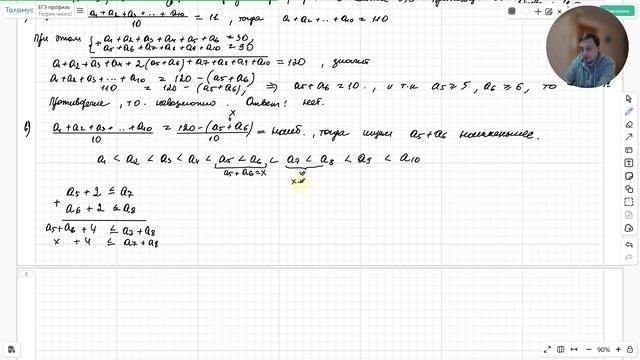 Таламус
ЕГЭ профиль
Теория чисел
a₁ + a₂ + a₃ + ... + a₁₀ / 10 = 11, тогда a₁ + a₂ + ... + a₁₀ = 110
При этом { a₁ + a₂ + a₃ + a₄ + a₅ + a₆ = 30,
+ a₅ + a₆ + a₇ + a₈ + a₉ + a₁₀ = 90
a₁ + a₂ + a₃ + a₄ + 2(a₅ + a₆) + a₇ + a₈ + a₉ + a₁₀ = 120, значит
a₁ + a₂ + a₃ + ... + a₁₀ = 120 - (a₅ + a₆)
110 = 120 - (a₅ + a₆), => a₅ + a₆ = 10, и т.к. a₅ ≥ 5, a₆ ≥ 6, то
Противоречие, т.о. невозможно. Ответ: нет.
x
в) a₁ + a₂ + a₃ + ... + a₁₀ / 10 = 120 - (a₅ + a₆) / 10 = наиб., тогда ищем a₅ + a₆ наименьшее.
a₁ < a₂ < a₃ < a₄ < a₅ < a₆ < a₇ < a₈ < a₉ < a₁₀
a₅ + a₆ = x
a₅ + 2 ≤ a₇
+
a₆ + 2 ≤ a₈
a₅ + a₆ + 4 ≤ a₇ + a₈
x + 4 ≤ a₇ + a₈
90%